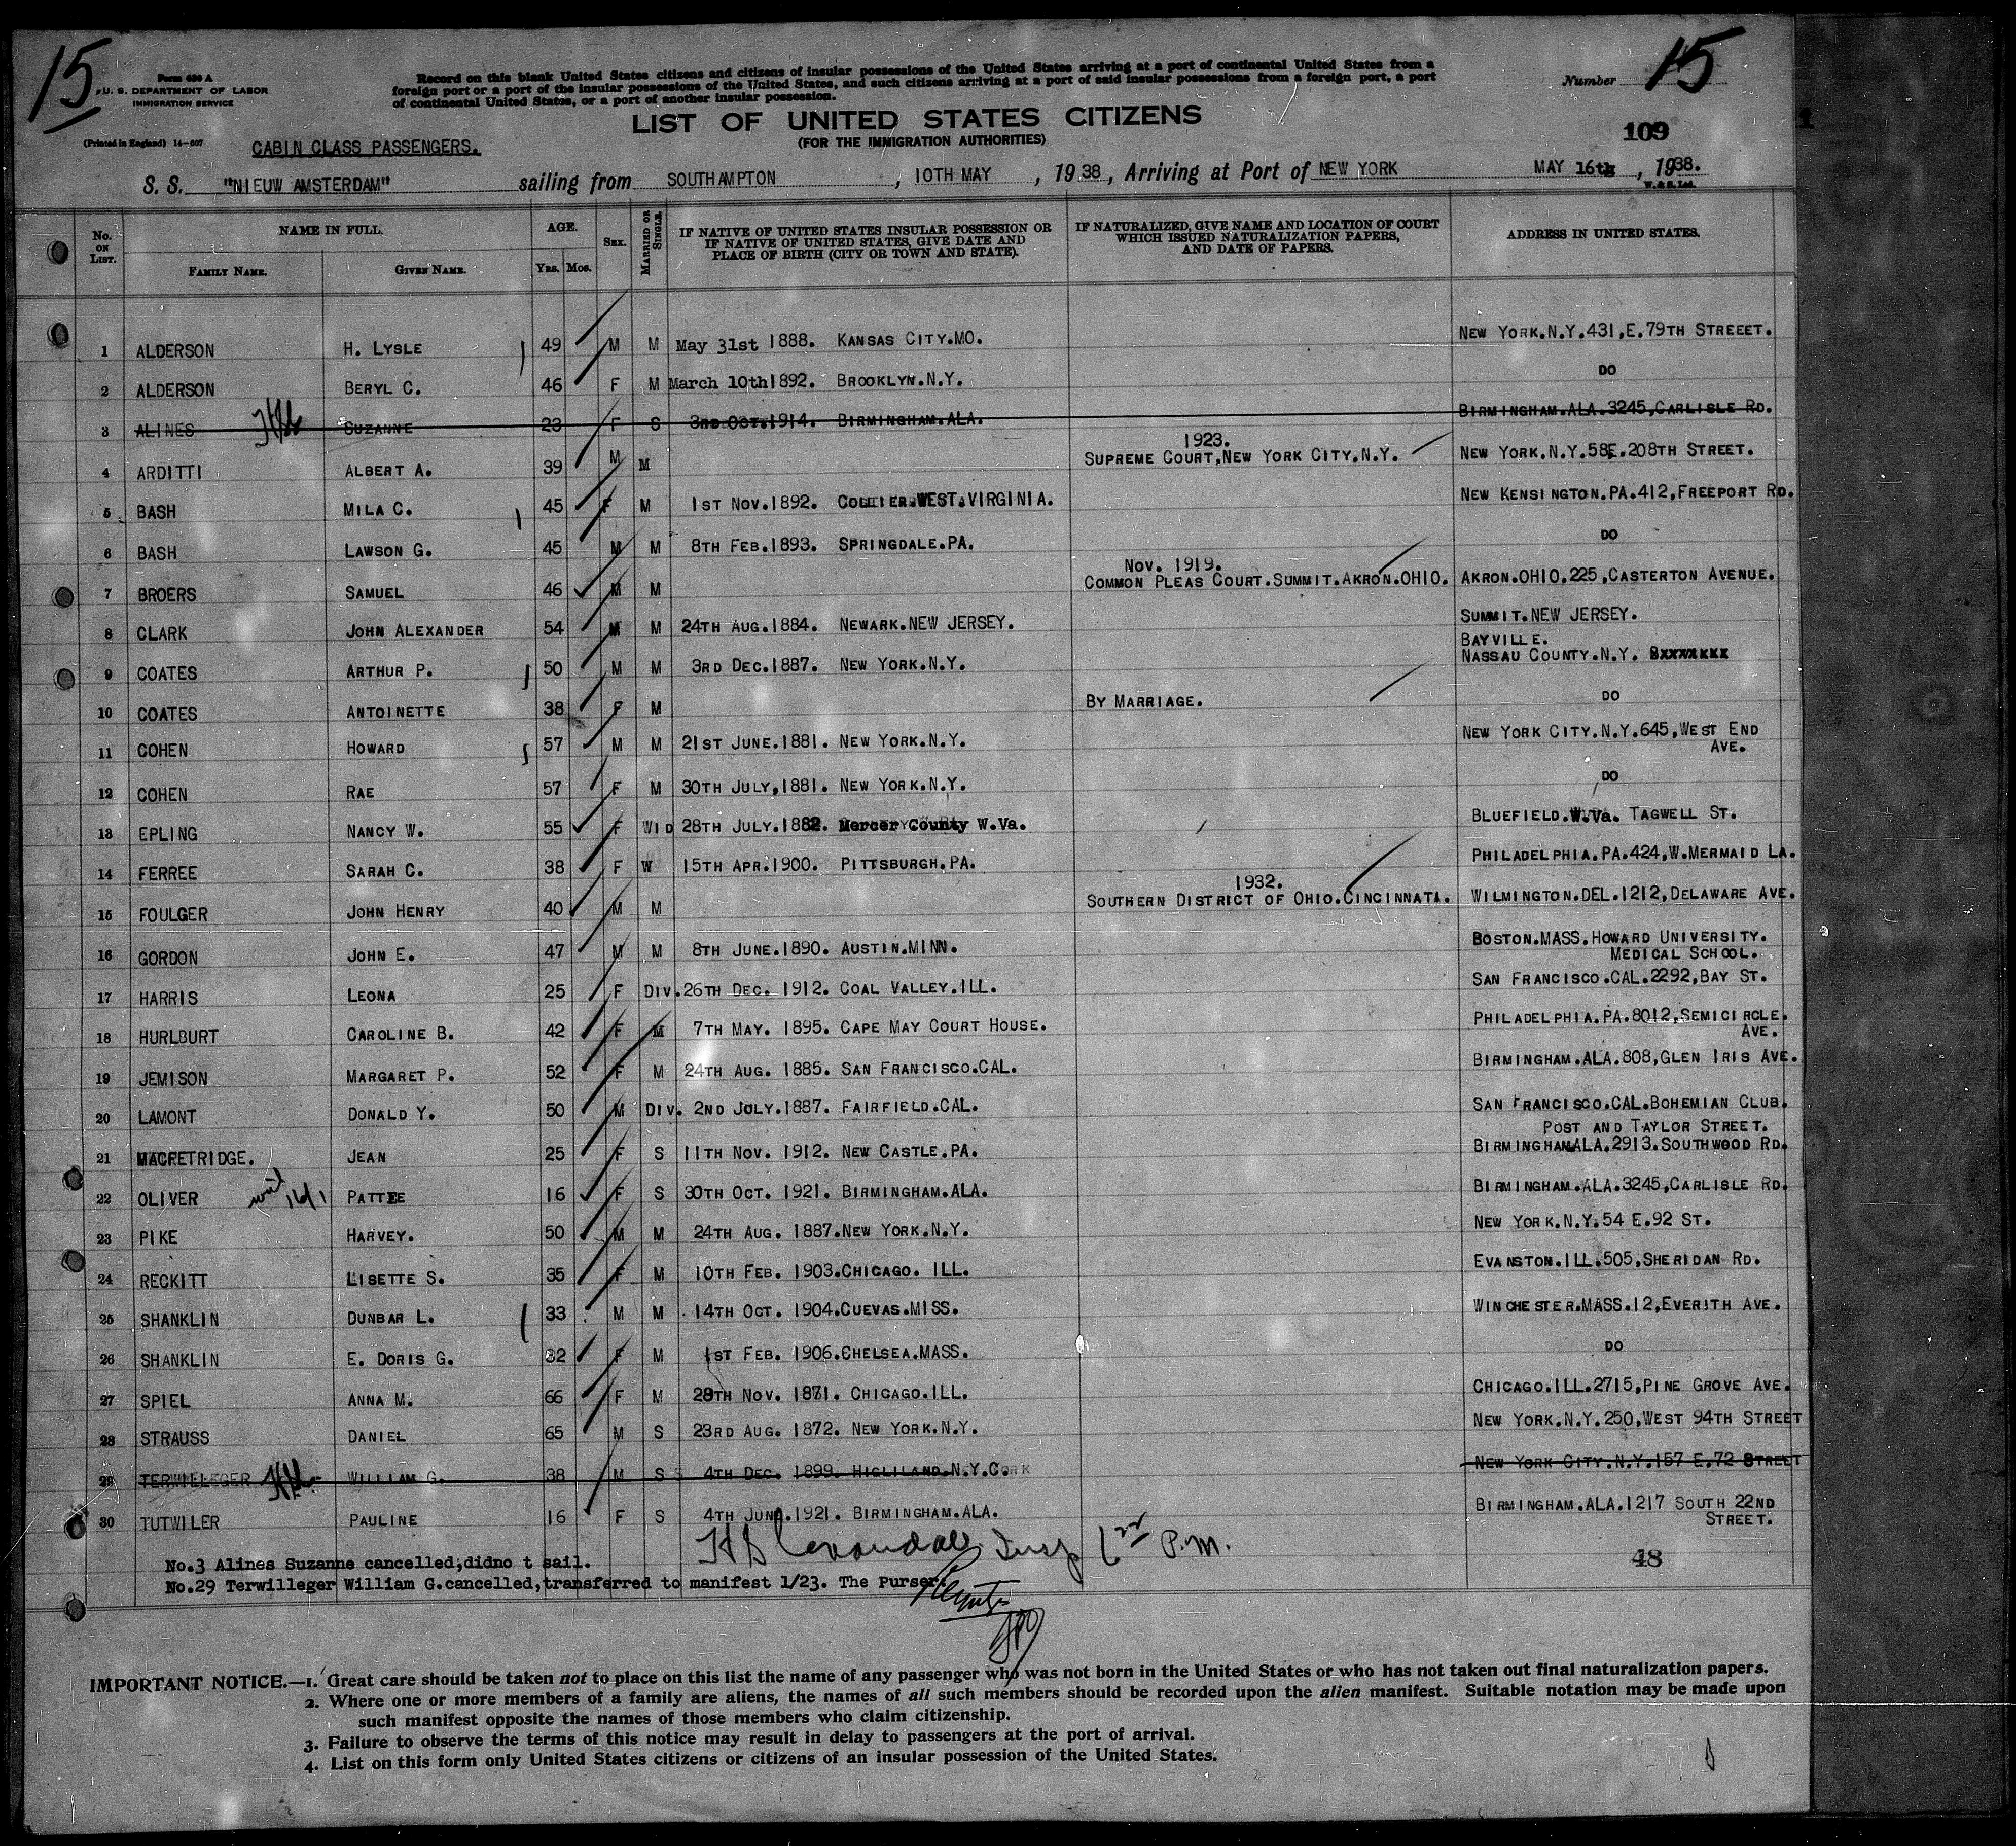 15
Form 630 A
U. S. DEPARTMENT OF LABOR
IMMIGRATION SERVICE
(Printed in England) 14-607
Record on this blank United States citizens and citizens of insular possessions of the United States arriving at a port of continental United States from a
foreign port or a port of the insular possessions of the United States, and such citizens arriving at a port of said insular possessions from a foreign port, a port
of continental United States, or a port of another insular possession.
Number 15
LIST OF UNITED STATES CITIZENS
(FOR THE IMMIGRATION AUTHORITIES)
109
CABIN CLASS PASSENGERS.
S. S. "NIEUW AMSTERDAM" sailing from SOUTHAMPTON, 10TH MAY, 1938, Arriving at Port of NEW YORK MAY 16th, 1938.
W. & S. Ltd.
No. ON LIST. NAME IN FULL. FAMILY NAME. GIVEN NAME. AGE. YRS. MOS. SEX. MARRIED OR SINGLE. IF NATIVE OF UNITED STATES INSULAR POSSESSION OR IF NATIVE OF UNITED STATES, GIVE DATE AND PLACE OF BIRTH (CITY OR TOWN AND STATE). IF NATURALIZED, GIVE NAME AND LOCATION OF COURT WHICH ISSUED NATURALIZATION PAPERS, AND DATE OF PAPERS. ADDRESS IN UNITED STATES.
1 ALDERSON H. LYSLE 49 M M May 31st 1888. KANSAS CITY.MO. NEW YORK.N.Y.431,E.79TH STREEET.
2 ALDERSON BERYL C. 46 F M March 10th1892. BROOKLYN.N.Y. DO
3 ALINES SUZANNE 23 F S 3RD OCT.1914. BIRMINGHAM.ALA. BIRMINGHAM.ALA.3245,CARLISLE RD.
4 ARDITTI ALBERT A. 39 M M 1923. SUPREME COURT,NEW YORK CITY.N.Y. NEW YORK.N.Y.58E.208TH STREET.
5 BASH MILA C. 45 F M 1ST NOV.1892. COLLIER.WEST.VIRGINIA. NEW KENSINGTON.PA.412,FREEPORT RD.
6 BASH LAWSON G. 45 M M 8TH FEB.1893. SPRINGDALE.PA. DO
7 BROERS SAMUEL 46 M M NOV. 1919. COMMON PLEAS COURT.SUMMIT.AKRON.OHIO. AKRON.OHIO.225,CASTERTON AVENUE.
8 CLARK JOHN ALEXANDER 54 M M 24TH AUG.1884. NEWARK.NEW JERSEY. SUMMIT.NEW JERSEY.
9 COATES ARTHUR P. 50 M M 3RD DEC.1887. NEW YORK.N.Y. BAYVILLE. NASSAU COUNTY.N.Y.
10 COATES ANTOINETTE 38 F M BY MARRIAGE. DO
11 COHEN HOWARD 57 M M 21ST JUNE.1881. NEW YORK.N.Y. NEW YORK CITY.N.Y.645,WEST END AVE.
12 COHEN RAE 57 F M 30TH JULY,1881. NEW YORK.N.Y. DO
13 EPLING NANCY W. 55 F WID 28TH JULY.1882. Mercer County W.Va. BLUEFIELD.W.Va. TAGWELL ST.
14 FERREE SARAH C. 38 F W 15TH APR.1900. PITTSBURGH.PA. PHILADELPHIA.PA.424,W.MERMAID LA.
15 FOULGER JOHN HENRY 40 M M 1932. SOUTHERN DISTRICT OF OHIO.CINCINNATI. WILMINGTON.DEL.1212,DELAWARE AVE.
16 GORDON JOHN E. 47 M M 8TH JUNE.1890. AUSTIN.MINN. BOSTON.MASS.HOWARD UNIVERSITY. MEDICAL SCHOOL.
17 HARRIS LEONA 25 F DIV. 26TH DEC. 1912. COAL VALLEY.ILL. SAN FRANCISCO.CAL.2292,BAY ST.
18 HURLBURT CAROLINE B. 42 F M 7TH MAY. 1895. CAPE MAY COURT HOUSE. PHILADELPHIA.PA.8012,SEMICIRCLE. AVE.
19 JEMISON MARGARET P. 52 F M 24TH AUG. 1885. SAN FRANCISCO.CAL. BIRMINGHAM.ALA.808,GLEN IRIS AVE.
20 LAMONT DONALD Y. 50 M DIV. 2ND JULY.1887. FAIRFIELD.CAL. SAN FRANCISCO.CAL.BOHEMIAN CLUB. POST AND TAYLOR STREET.
21 MACRETRIDGE. JEAN 25 F S 11TH NOV. 1912. NEW CASTLE.PA. BIRMINGHAMALA.2913.SOUTHWOOD RD.
22 OLIVER PATTEE 16 F S 30TH OCT. 1921. BIRMINGHAM.ALA. BIRMINGHAM.ALA.3245,CARLISLE RD.
23 PIKE HARVEY. 50 M M 24TH AUG. 1887.NEW YORK.N.Y. NEW YORK.N.Y.54 E.92 ST.
24 RECKITT LISETTE S. 35 F M 10TH FEB. 1903.CHICAGO. ILL. EVANSTON.ILL.505,SHERIDAN RD.
25 SHANKLIN DUNBAR L. 33 M M 14TH OCT. 1904.CUEVAS.MISS. WINCHESTER.MASS.12,EVERITH AVE.
26 SHANKLIN E. DORIS G. 32 F M 1ST FEB. 1906.CHELSEA.MASS. DO
27 SPIEL ANNA M. 66 F M 28TH NOV. 1871. CHICAGO.ILL. CHICAGO.ILL.2715,PINE GROVE AVE.
28 STRAUSS DANIEL 65 M S 23RD AUG. 1872. NEW YORK.N.Y. NEW YORK.N.Y.250,WEST 94TH STREET
29 TERWILLEGER WILLIAM G. 38 M S 4TH DEC. 1899. HIGLILAND.N.Y. NEW YORK CITY.N.Y.157 E.72 STREET
30 TUTWILER PAULINE 16 F S 4TH JUNE.1921. BIRMINGHAM.ALA. BIRMINGHAM.ALA.1217 SOUTH 22ND STREET.
P.M.
No.3 Alines Suzanne cancelled,didno t sail.
48
No.29 Terwilleger William G.cancelled,transferred to manifest 1/23. The Purser.
IMPORTANT NOTICE.—1. Great care should be taken not to place on this list the name of any passenger who was not born in the United States or who has not taken out final naturalization papers.
2. Where one or more members of a family are aliens, the names of all such members should be recorded upon the alien manifest. Suitable notation may be made upon
such manifest opposite the names of those members who claim citizenship.
3. Failure to observe the terms of this notice may result in delay to passengers at the port of arrival.
4. List on this form only United States citizens or citizens of an insular possession of the United States.